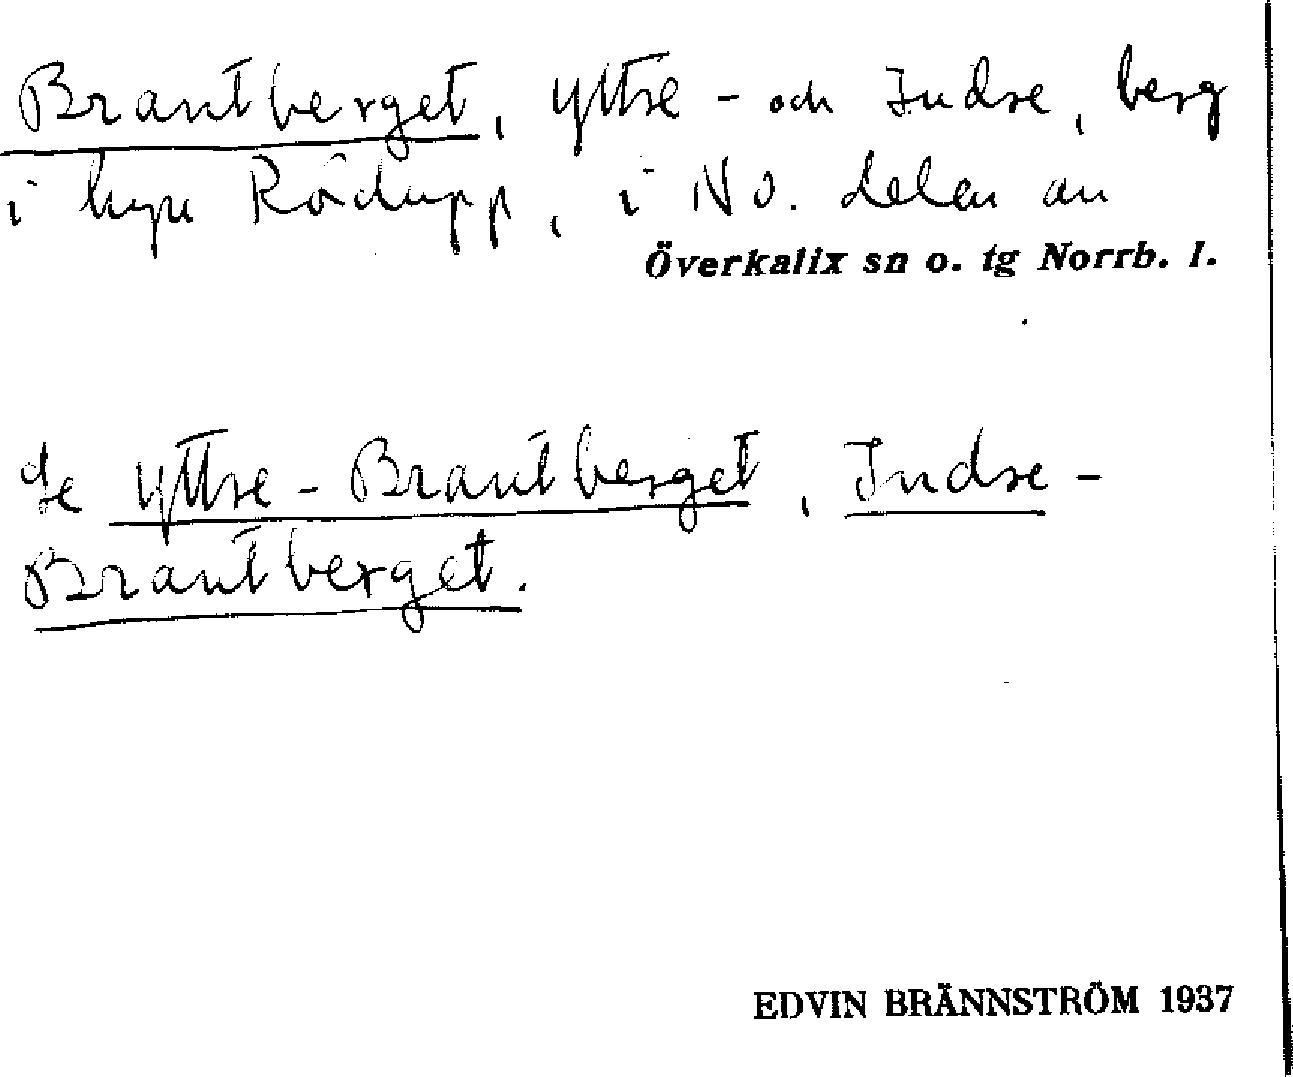 Brantberget, Yttre- och Indre, berg
i byn Rödupp, i NO. delen av
Överkalix sn o. tg Norrb. l.
Se Yttre-Brantberget, Indre-
Brantberget.
EDVIN BRÄNNSTRÖM 1937